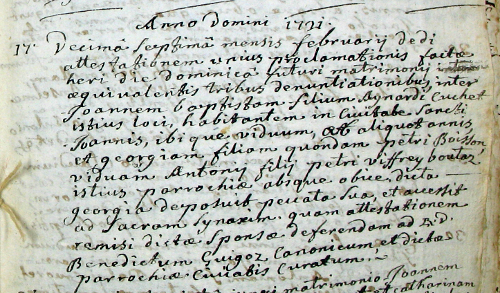 Anno Domini 1721.
17. Decimâ Septimâ mensis februarij dedi
attestationem unius proclamationis factæ
heri die dominicâ futuri matrimonij
æquivalentis tribus denuntiationibus inter
Joannem baptistam filium Aynardi Cuchet
istius loci, habitantem in Civitate Sancti
Joannis, ibique viduum, ab aliquot annis
et georgiam filiam quondam petri Boisson
viduam Antonij filij petri viffrey boulaz
istius parrochiæ absque obice, dicta
georgia deposuit peccata sua, et accessit
ad Sacram Synaxim. quam attestationem
remisi dictæ Sponsæ deferendam ad R.D.
Benedictum Guigoz Canonicum, et dictæ
parrochiæ Civitatis Curatum.
matrimonio Joannem
Catharinam